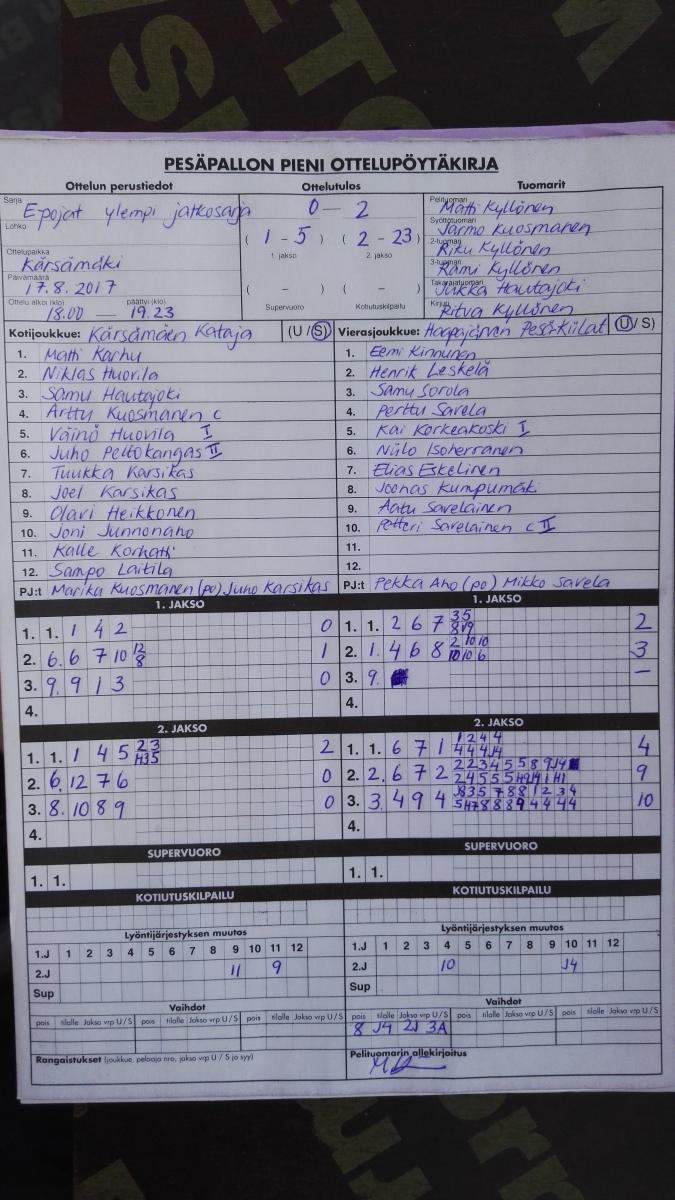 PESÄPALLON PIENI OTTELUPÖYTÄKIRJA
Ottelun perustiedot
Sarja
Epojat ylempi jatkosarja
Lohko
Ottelupaikka
Kärsämäki
Päivämäärä
17.8.2017
Ottelu alkoi (klo) päättyi (klo)
18.00 — 19.23
Ottelutulos
0 - 2
( 1 - 5 ) ( 2 - 23 )
1. jakso 2. jakso
( - ) ( - )
Supervuoro Kotiutuskilpailu
Tuomarit
Pelituomari
Matti Kyllönen
Syöttötuomari
Jarmo Kuosmanen
2-tuomari
Riku Kyllönen
3-tuomari
Rami Kyllönen
Takarajatuomari
Jukka Hautajoki
Kirjuri
Ritva Kyllönen
Kotijoukkue: Kärsämäen Kataja (U / S)
1. Matti Karhu
2. Niklas Huovila
3. Samu Hautajoki
4. Arttu Kuosmanen C
5. Väinö Huovila I
6. Juho Peltokangas II
7. Tuukka Karsikas
8. Joel Karsikas
9. Olavi Heikkonen
10. Joni Junnonaho
11. Kalle Korhatti
12. Sampo Laitila
PJ:t Marika Kuosmanen (po) Juho Karsikas
Vierasjoukkue: Haapajärven Pesä-Kiilat (U / S)
1. Eemi Kinnunen
2. Henrik Leskelä
3. Samu Sorola
4. Perttu Savela
5. Kai Korkeakoski I
6. Niilo Isoherranen
7. Elias Eskelinen
8. Joonas Kumpumäki
9. Aatu Saveläinen
10. Petteri Saveläinen C II
11.
12.
PJ:t Pekka Aho (po) Mikko Savela
1. JAKSO
1. 1. 1 4 2 0
2. 6. 6 7 10 12 8 1
3. 9. 9 1 3 0
4.
2. JAKSO
1. 1. 1 4 5 23 H35 2
2. 6. 12 7 6 0
3. 8. 10 8 9 0
4.
SUPERVUORO
1. 1.
KOTIUTUSKILPAILU
1. JAKSO
1. 1. 2 6 7 35 2
2. 1. 4 6 8 2 10 10 10 10 6 3
3. 9. —
4.
2. JAKSO
1. 1. 6 7 1 1 2 4 4 4 4 4 J4 4
2. 2. 6 7 2 2 2 3 4 5 5 8 9 J4 9
3. 3. 4 9 4 10
4.
SUPERVUORO
1. 1.
KOTIUTUSKILPAILU
Lyöntijärjestyksen muutos
1.J 1 2 3 4 5 6 7 8 9 10 11 12
2.J 11 9
Sup
Vaihdot
pois tilalle Jakso vrp U / S pois tilalle Jakso vrp U / S pois tilalle Jakso vrp U / S
Rangaistukset (joukkue, pelaaja nro, jakso vrp U / S ja syy)
Lyöntijärjestyksen muutos
1.J 1 2 3 4 5 6 7 8 9 10 11 12
2.J 10 J4
Sup
Vaihdot
pois tilalle Jakso vrp U / S pois tilalle Jakso vrp U / S pois tilalle Jakso vrp U / S
8 J4 2J 3A
Pelituomarin allekirjoitus